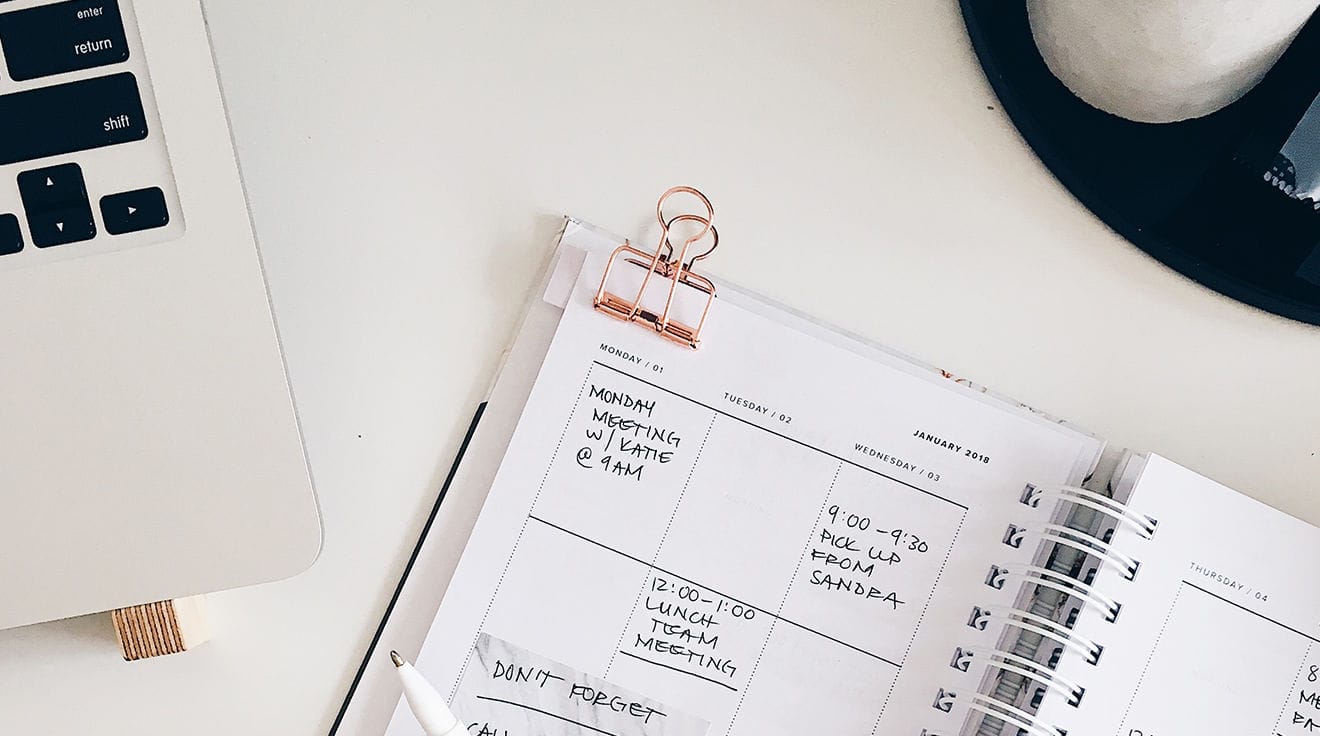 enter
return
shift
JANUARY 2018
MONDAY / 01
TUESDAY / 02
WEDNESDAY / 03
MONDAY
MEETING
W/ KATIE
@ 9AM
9:00-9:30
PICK UP
FROM
SANDRA
12:00-1:00
LUNCH
TEAM
MEETING
DON'T FORGET
CALL
THURSDAY / 04
8